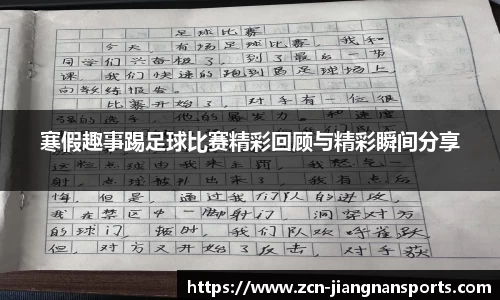 足球比赛
今天,有场足球比赛,我和
同学们兴奋极了,到了最后一节
课,我们快速的跑到足球场上
向教练报告。
比赛开始了,对手有一位很
寒假趣事踢足球比赛精彩回顾与精彩瞬间分享
射,点球被扑出来了,我有点后
悔,但是,通过我们队的进攻,
我在禁区中一脚射门,洞穿对方
的球门,顿时,我们队欢呼雀跃
但,对方又开始了反击,对手获
https://www.zcn-jiangnansports.com